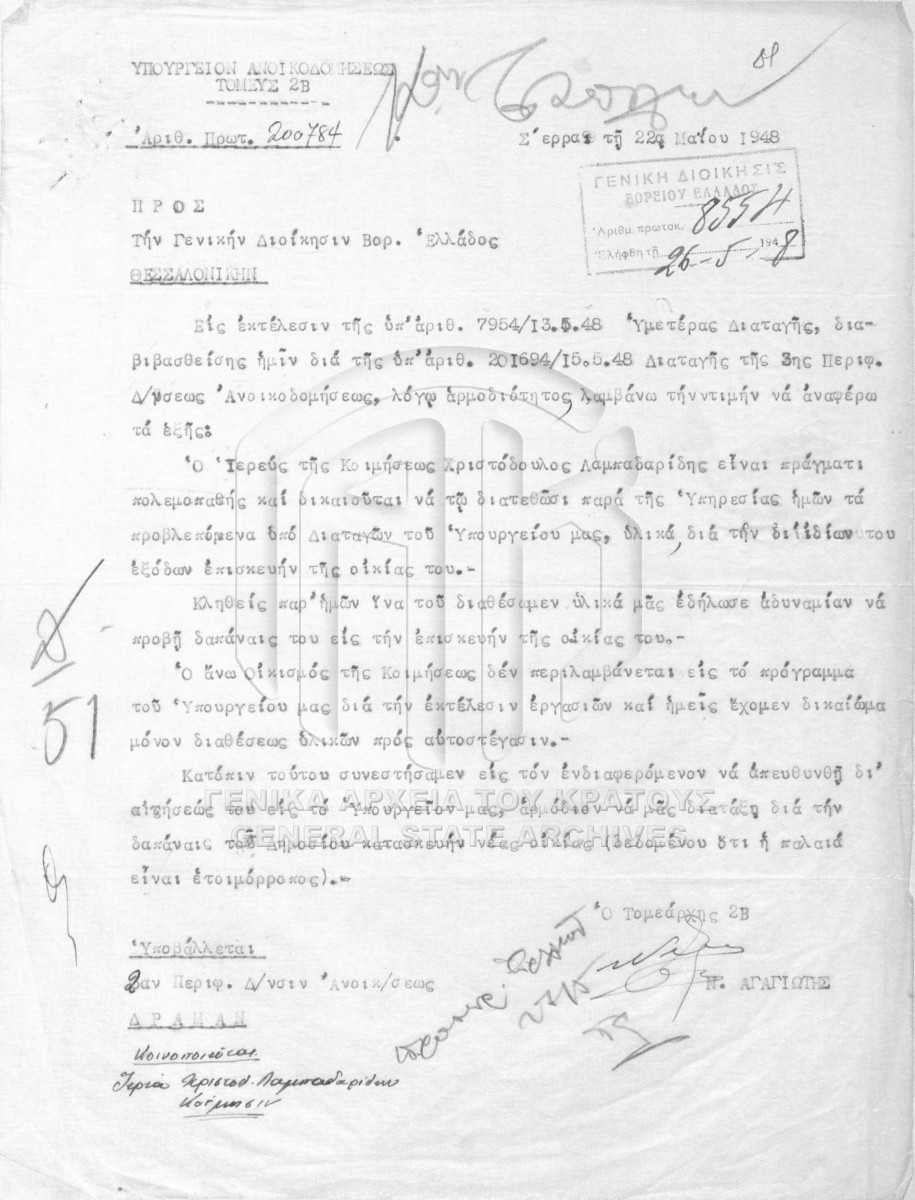 ΥΠΟΥΡΓΕΙΟΝ ΑΝΟΙΚΟΔΟΜΗΣΕΩΣ
ΤΟΜΕΥΣ 2Β
Ἀριθ. Πρωτ. 200784
Σέρραι τῇ 22ᾳ Μαΐου 1948
ΓΕΝΙΚΗ ΔΙΟΙΚΗΣΙΣ
ΒΟΡΕΙΟΥ ΕΛΛΑΔΟΣ
Ἀριθμ. πρωτοκ. 8554
Ἐλήφθη τῇ 26-5-1948
Π Ρ Ο Σ
Τήν Γενικήν Διοίκησιν Βορ. Ἑλλάδος
ΘΕΣΣΑΛΟΝΙΚΗΝ
Εἰς ἐκτέλεσιν τῆς ὑπ' ἀριθ. 7954/13.5.48 Ὑμετέρας Διαταγῆς, δια-
βιβασθείσης ἡμῖν διά τῆς ὑπ' ἀριθ. 201694/15.5.48 Διαταγῆς τῆς 3ης Περιφ.
Δ/νσεως Ἀνοικοδομήσεως, λόγῳ ἁρμοδιότητος, λαμβάνω τήνντιμήν νά ἀναφέρω
τά ἑξῆς:
Ὁ Ἱερεύς τῆς Κοιμήσεως Χριστόδουλος Λαμπαδαρίδης εἶναι πράγματι
πολεμοπαθής καί δικαιοῦται νά τῷ διατεθῶσι παρά τῆς Ὑπηρεσίας ἡμῶν τά
προβλεπόμενα ὑπό Διαταγῶν τοῦ Ὑπουργείου μας, ὑλικά, διά τήν δι'ἰδίων του
ἐξόδων ἐπισκευήν τῆς οἰκίας του.-
Κληθείς παρ'ἡμῶν ἵνα τοῦ διαθέσωμεν ὑλικά μᾶς ἐδήλωσε ἀδυναμίαν νά
προβῇ δαπάναις του εἰς τήν ἐπισκευήν τῆς οἰκίας του.-
Ὁ ἄνω Οἰκισμός τῆς Κοιμήσεως δέν περιλαμβάνεται εἰς τό πρόγραμμα
τοῦ Ὑπουργείου μας διά τήν ἐκτέλεσιν ἐργασιῶν καί ἡμεῖς ἔχομεν δικαίωμα
μόνον διαθέσεως ὑλικῶν πρός αὐτοστέγασιν.-
Κατόπιν τούτου συνεστήσαμεν εἰς τόν ἐνδιαφερόμενον νά ἀπευθυνθῇ δι'
αἰτήσεώς του εἰς τό Ὑπουργεῖον μας, ἁρμόδιον νά μᾶς διατάξῃ διά τήν
δαπάναις τοῦ Δημοσίου κατασκευήν νέας οἰκίας (δεδομένου ὅτι ἡ παλαιά
εἶναι ἑτοιμόρροπος).-
ΓΕΝΙΚΑ ΑΡΧΕΙΑ ΤΟΥ ΚΡΑΤΟΥΣ
GENERAL STATE ARCHIVES
Ὁ Τομεάρχης 2Β
Ν. ΑΓΑΓΙΩΤΗΣ
Ὑποβάλλεται
2αν Περιφ. Δ/νσιν Ἀνοικ/σεως
Δ Ρ Α Μ Α Ν
Κοινοποιεῖται
Ἱερέα Χριστόδ. Λαμπαδαρίδην
Κοίμησιν
51